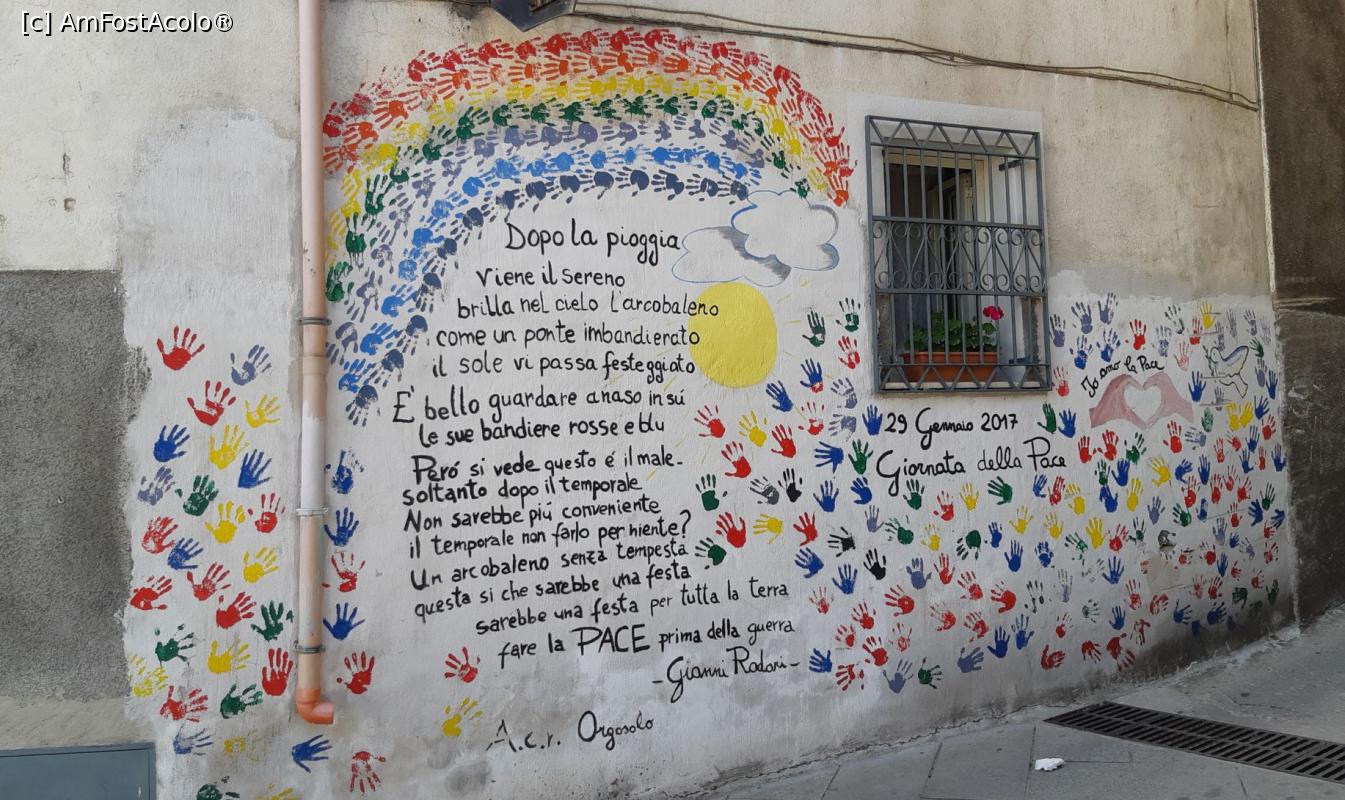 [c] AmFostAcolo®
Dopo la pioggia
viene il sereno
brilla nel cielo l'arcobaleno
come un ponte imbandierato
il sole vi passa festeggiato
E' bello guardare a naso in sú
le sue bandiere rosse e blu
Peró si vede questo é il male-
soltanto dopo il temporale
Non sarebbe piú conveniente
il temporale non farlo per niente?
Un arcobaleno senza tempesta
questa si che sarebbe una festa
sarebbe una festa per tutta la terra
fare la PACE prima della guerra
-Gianni Rodari-
A.c.r. Orgosolo
29 Gennaio 2017
Giornata della Pace
Io amo la Pace